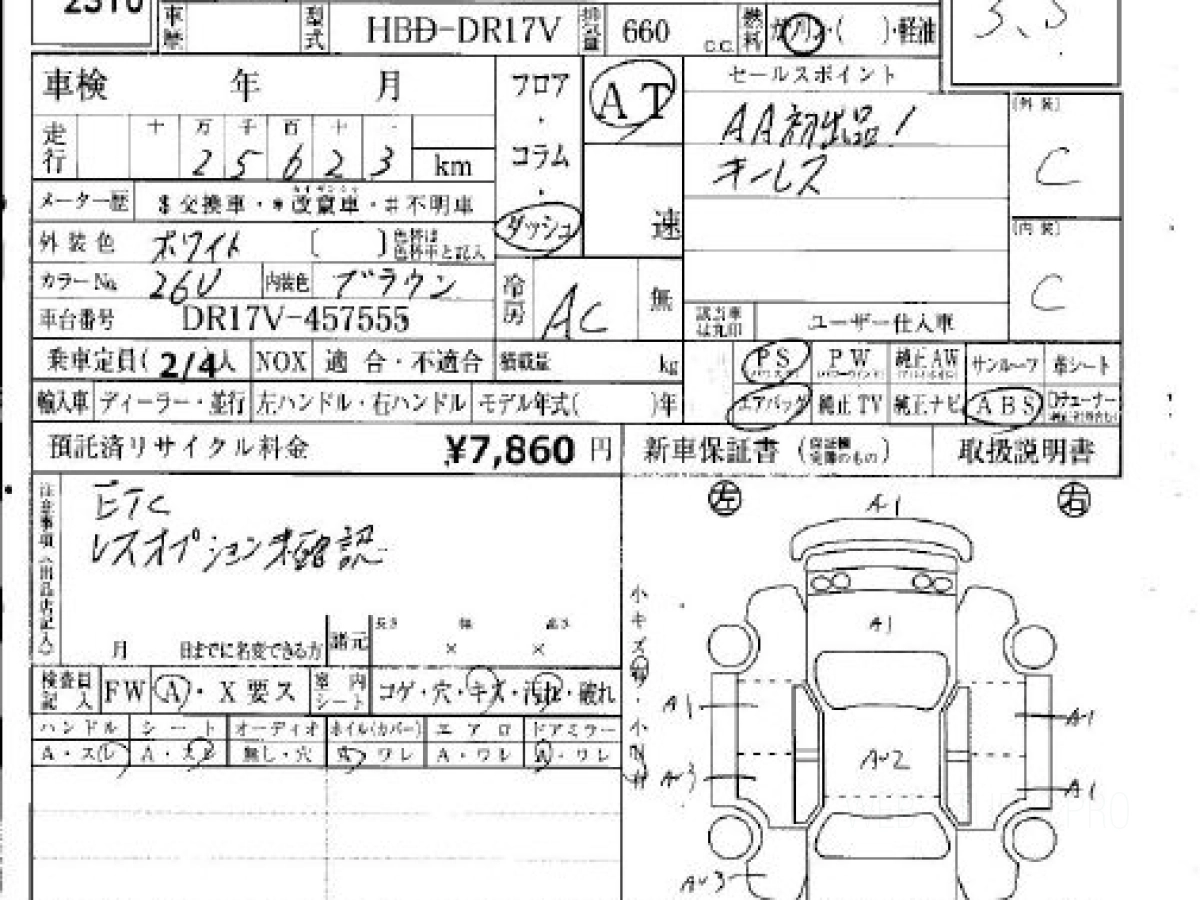 2310
車歴 型式 HBD-DR17V 排気量 660 c.c. 燃料 ガソリン・( )・軽油
3、5
車検 年 月 フロア・コラム・ダッシュ AT 速
セールスポイント
AA初出品!
キーレス
(外装) C
走行 十 万 千 百 十 一
2 5 6 2 3 km
メーター歴 $交換車・*改竄車・#不明車
(内装) C
外装色 ホワイト 〔 〕色替は色替車と記入
カラーNo. 26U 内装色 ブラウン
冷房 AC 無
車台番号 DR17V-457555
該当車は丸印 ユーザー仕入車
乗車定員( 2/4 人 NOX 適合・不適合 積載量 kg
PS PW 純正AW サンルーフ 革シート
輸入車 ディーラー・並行 左ハンドル・右ハンドル モデル年式( )年
エアバッグ 純正TV 純正ナビ ABS
預託済リサイクル料金 ¥7,860 円
新車保証書 (保証欄完備のもの) 取扱説明書
注意事項(出品店記入)
ETC
レスオプション未確認
月 日までに名変できる方 諸元 長さ × 幅 × 高さ
検査員記入 FW A・X要ス 室内シート コゲ・穴・キズ・汚れ・破れ
ハンドル シート オーディオ ホイル(カバー) エアロ ドアミラー
A・スレ A・スレ 無し・穴 キズ ワレ A・ワレ A・ワレ
左 右
A1
A1
A1
A1
A2
A3
A1
A3